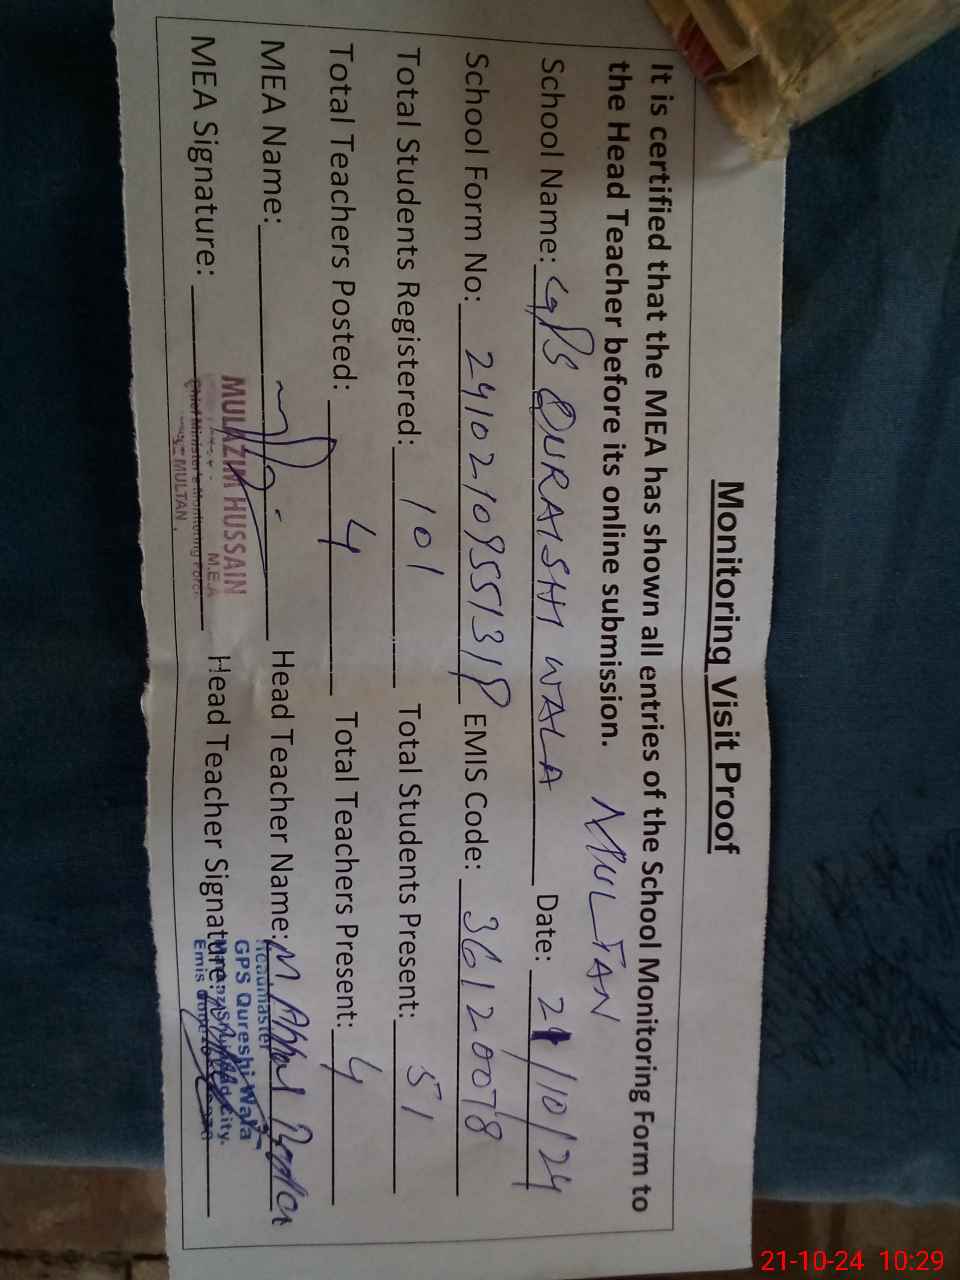 Monitoring Visit Proof
It is certified that the MEA has shown all entries of the School Monitoring Form to
the Head Teacher before its online submission. MULTAN
School Name: GPS QURAISHI WALA Date: 21/10/24
School Form No: EMIS Code: 36120078
Total Students Registered: 101 Total Students Present: 51
Total Teachers Posted: 4 Total Teachers Present: 4
MEA Name: Head Teacher Name: M.
MEA Signature: Head Teacher Signature:
MULAZIM HUSSAIN
M.E.A
Chief Minister's Monitoring Force
MULTAN
Headmaster
GPS Qureshi Wala
City.
Emis
21-10-24 10:29